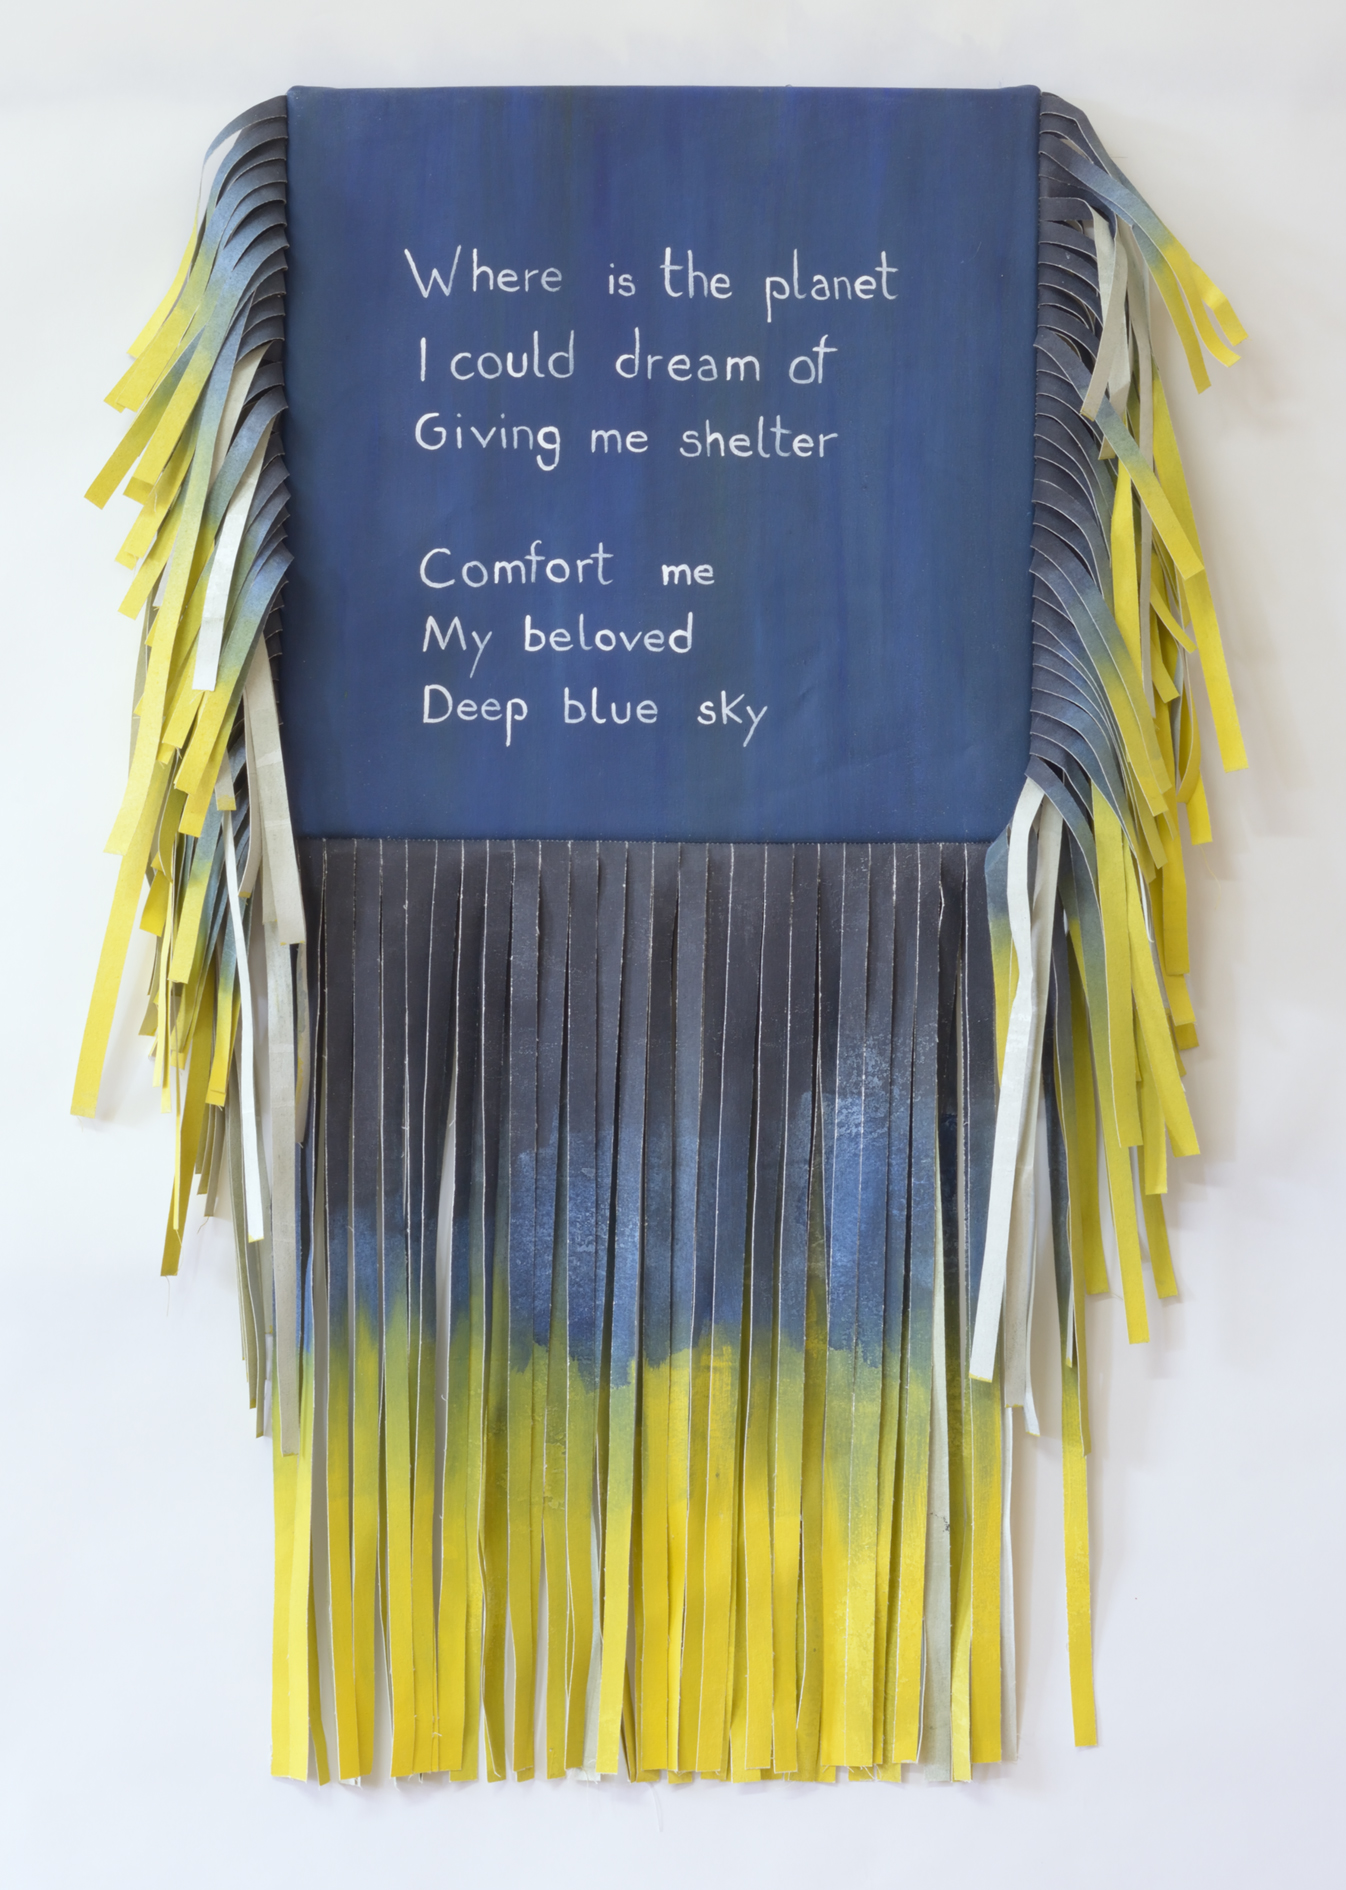 Where is the planet
I could dream of
Giving me shelter
Comfort me
My beloved
Deep blue sky